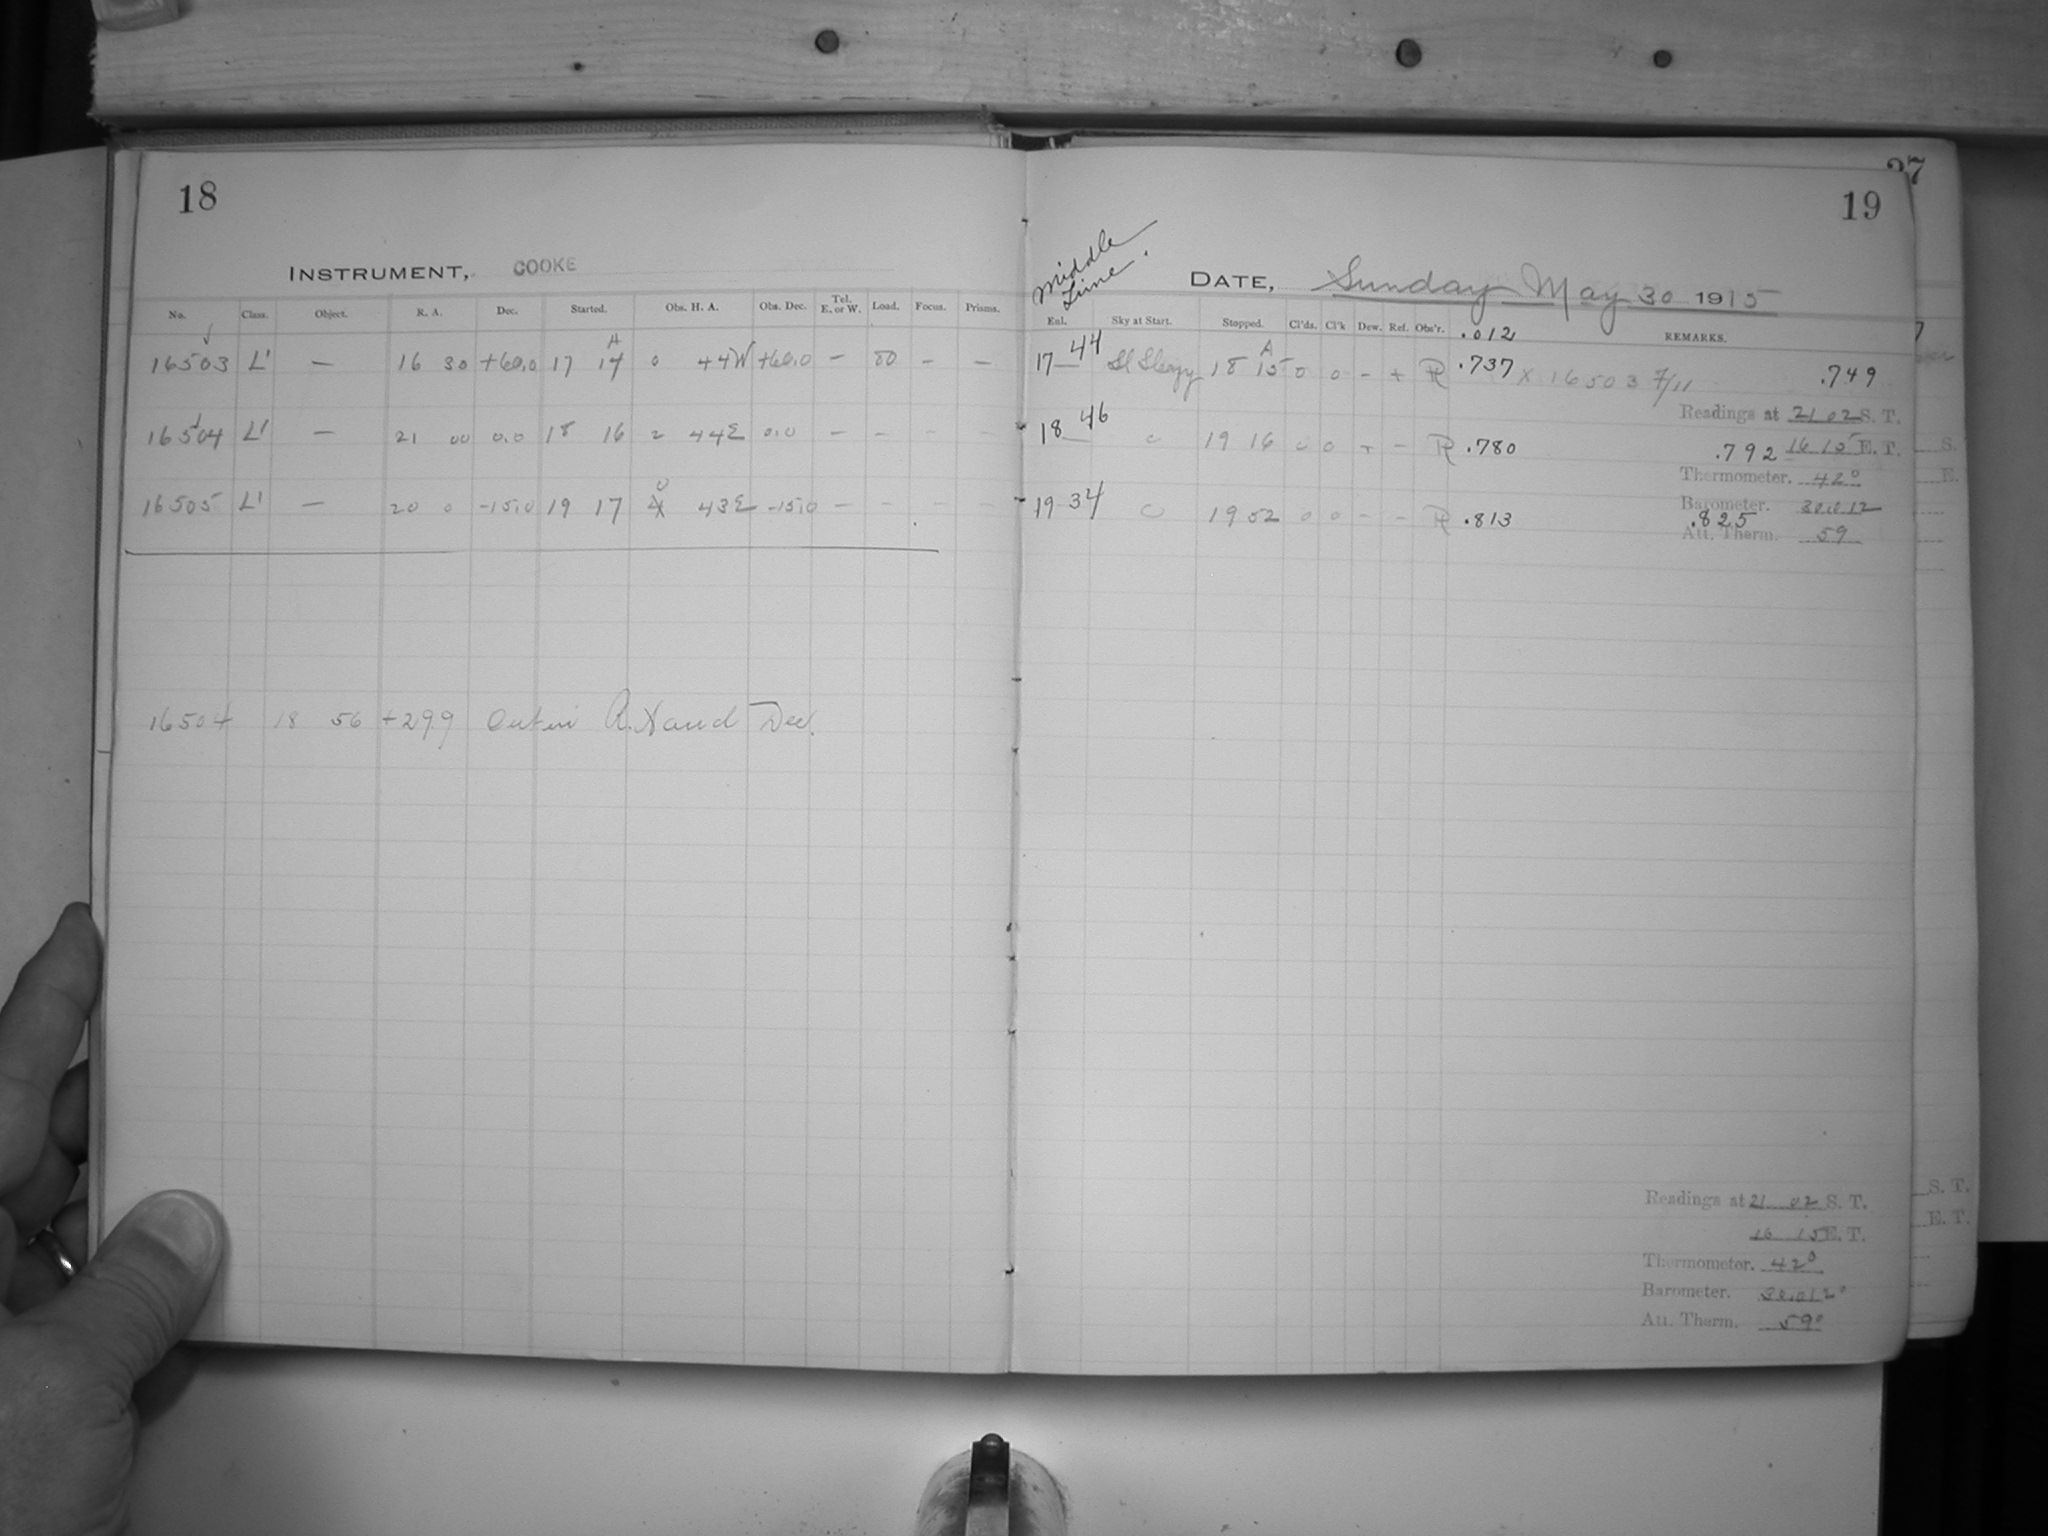 18
INSTRUMENT, COOKE
No. Class. Object. R. A. Dec. Started. Obs. H. A. Obs. Dec. Tel. E. or W. Load. Focus. Prisms.
A
16503 L' — 16 30 +60.0 17 14 0 44W +60.0 — 80 — —
16504 L' — 21 00 0.0 18 16 2 44E 0.0 — - - -
0
16505 L' — 20 0 -15.0 19 17 43E -15.0 — - - -
16504 18 56 +29.9 R. Hand Dec.
37
19
Middle
Time.
DATE, Sunday May 30 1915
Enl. Sky at Start. Stopped. Cl'ds. Cl'k Dew. Ref. Obs'r. .012 REMARKS.
A
17 44 Sl 18 15 0 0 - + R .737 x 16503 7/11 .749
Readings at 21 02 S. T.
18 46 0 19 16 0 0 - - R .780 .792 16 15 E. T.
Thermometer. 42°
Barometer. 30.012
19 34 0 19 52 0 0 - - R .813 .825
Att. Therm. 59
Readings at 21 02 S. T.
16 15 E. T.
Thermometer. 42°
Barometer. 30.012
Att. Therm. 59°
S. T.
E. T.